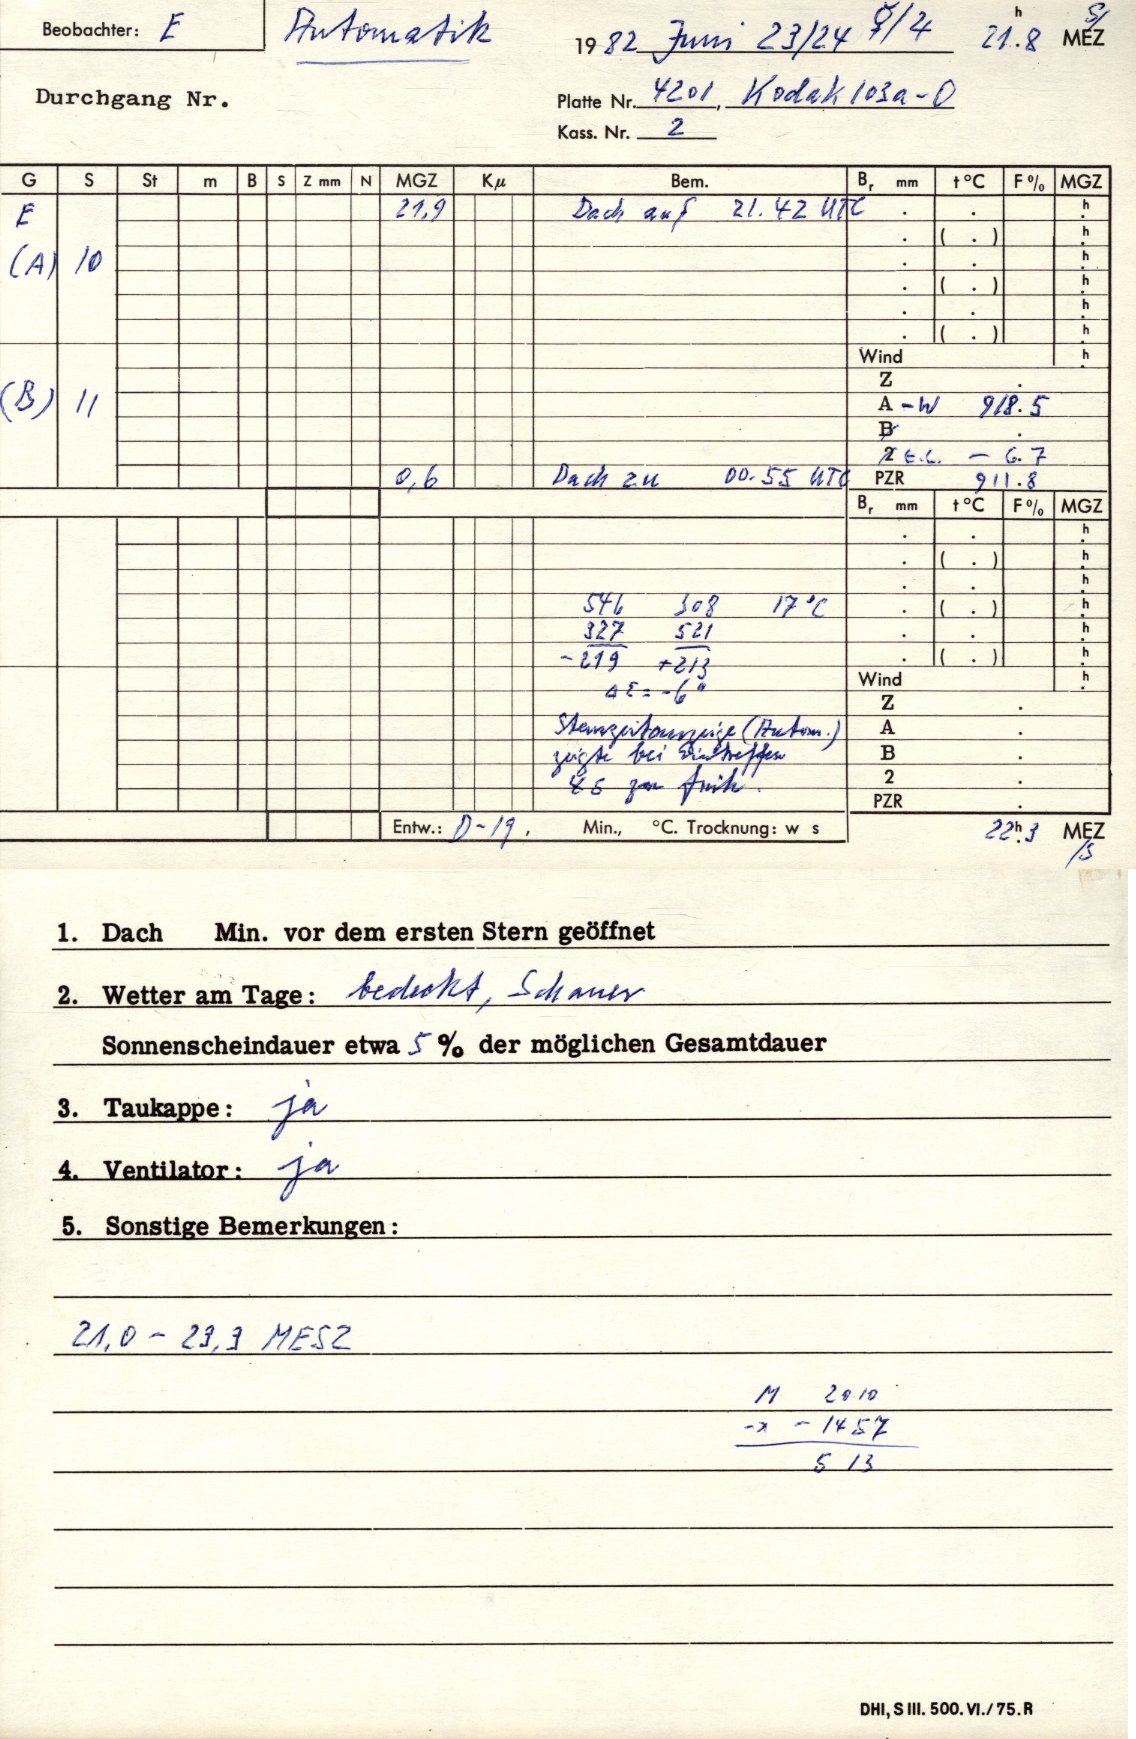 Beobachter: E Automatik 1982 Juni 23/24 ☿/♃ 21h.8 MEZ
Durchgang Nr. Platte Nr. 4201, Kodak 103a-O
Kass. Nr. 2
G S St m B S Z mm N MGZ Kμ Bem. Br mm t °C F % MGZ
E 21,9 Dach auf 21.42 UTC . . h
. ( . ) h
(A) 10 . . h
. ( . ) h
. . h
. ( . ) h
Wind h
Z .
(B) 11 A -W 918.5
B .
2 E.L. - 6.7
0,6 Dach zu 00.55 UTC PZR 911.8
Br mm t °C F % MGZ
. . h
. ( . ) h
. . h
546 308 17 °C . ( . ) h
327 521 . . h
-219 +213 . ( . ) h
ΔE = -6" Wind h
Z .
Sternzeitanzeige (Autom.) A .
zeigte bei Eintreffen B .
4s zu früh. 2 .
PZR .
Entw.: D-19, Min., °C. Trocknung: w s 22h.3 MEZ
/S
1. Dach Min. vor dem ersten Stern geöffnet
2. Wetter am Tage: bedeckt, Schauer
Sonnenscheindauer etwa 5 % der möglichen Gesamtdauer
3. Taukappe: ja
4. Ventilator: ja
5. Sonstige Bemerkungen:
21,0 - 23,3 MESZ
M 2010
-x - 1457
513
DHI, S III. 500. VI. / 75. R